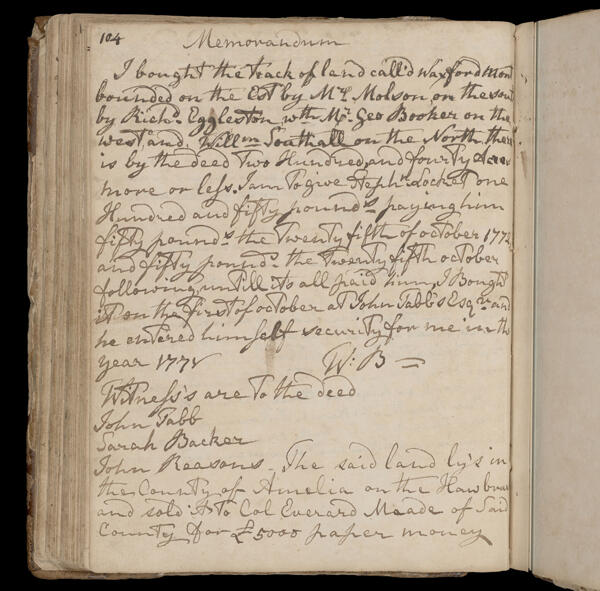 104
Memorandum
I bought the track of land call'd Waxford
bounded on the Est by Mr Molson, on the sou
by Richd. Eggleston wth Mr. Geo Booker on the
west, and Willm Southall on the North there
is by the deed Two Hundred and fourty Acres
more or less. I am To give Stephn Locket one
Hundred and fifty pounds. paying him
fifty pounds. the Twenty fifth of october 177
and fifty pounds. the Twenty fifth october
following, untill its all paid him, I Bought
it on the first of october at John Tabb's Esqr. and
he entered himself security for me in the
year 177
W: B
Witness's are To the deed
John Tabb
Sarah Backer
John Reasons. The said land ly's in
the County of Amelia on the Haw
and sold it To Col Everard Meade of Said
County for £5000 paper money